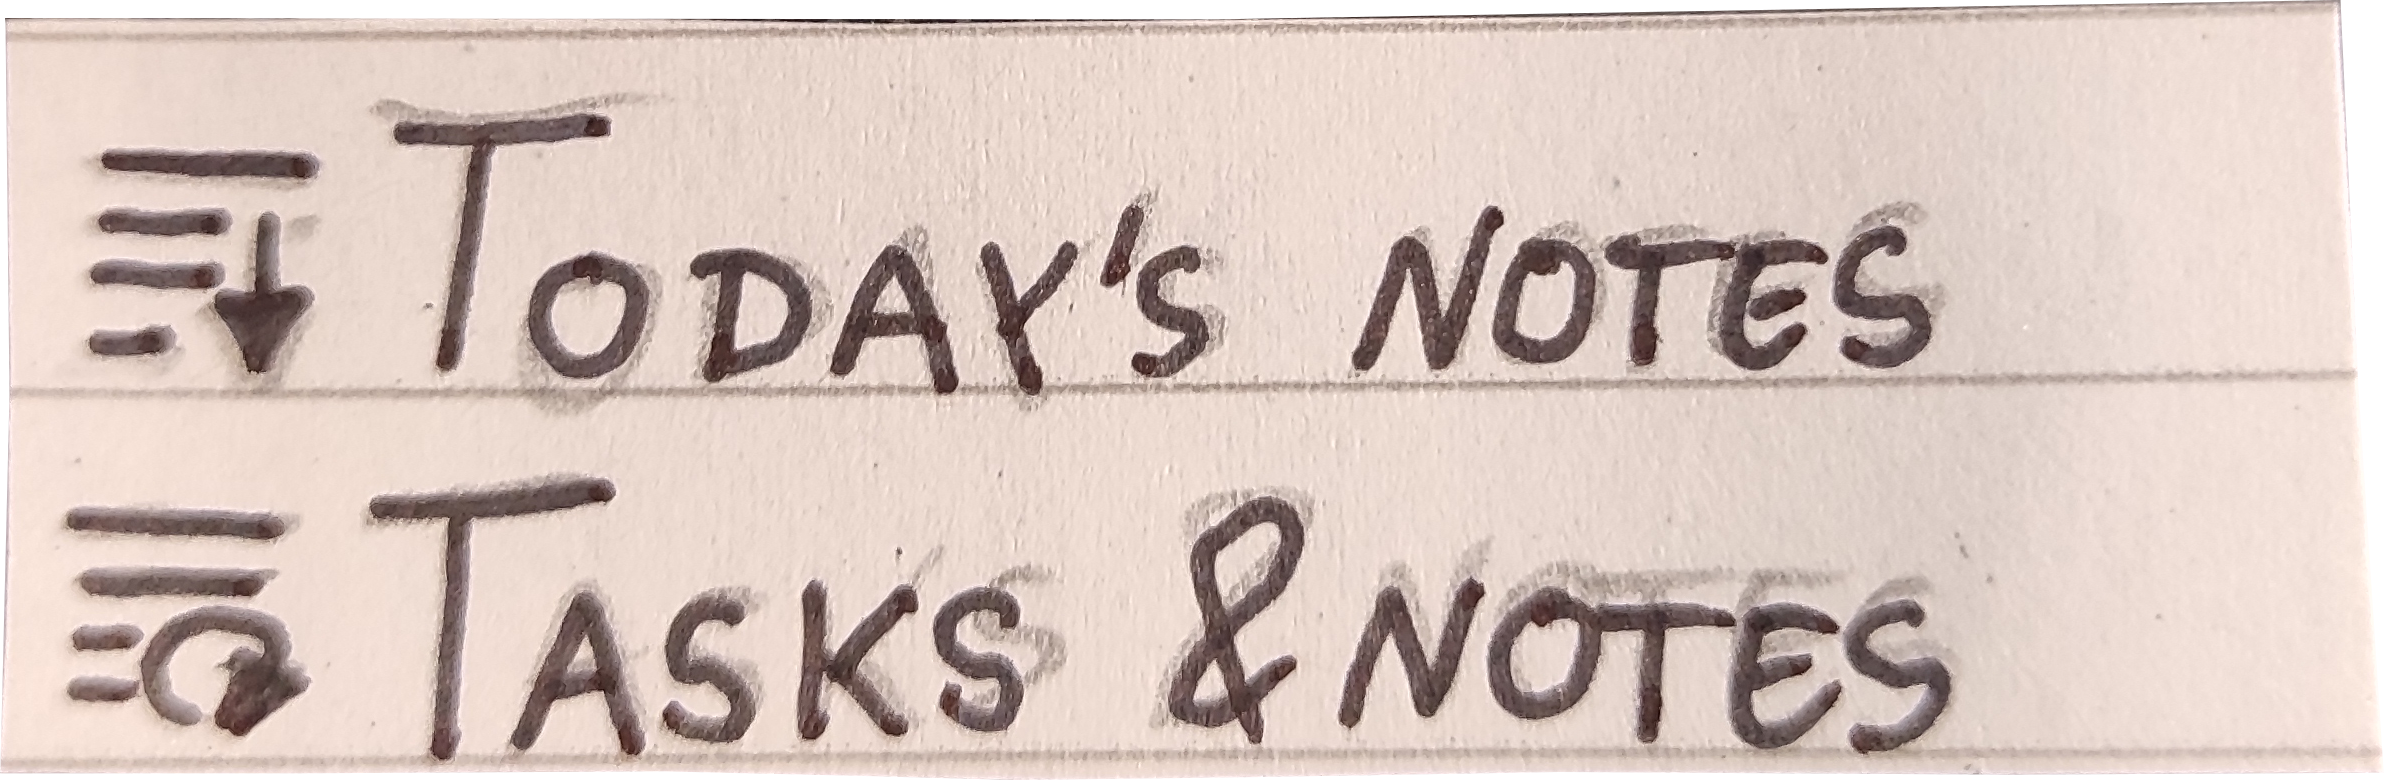 Today's Notes
Tasks & Notes